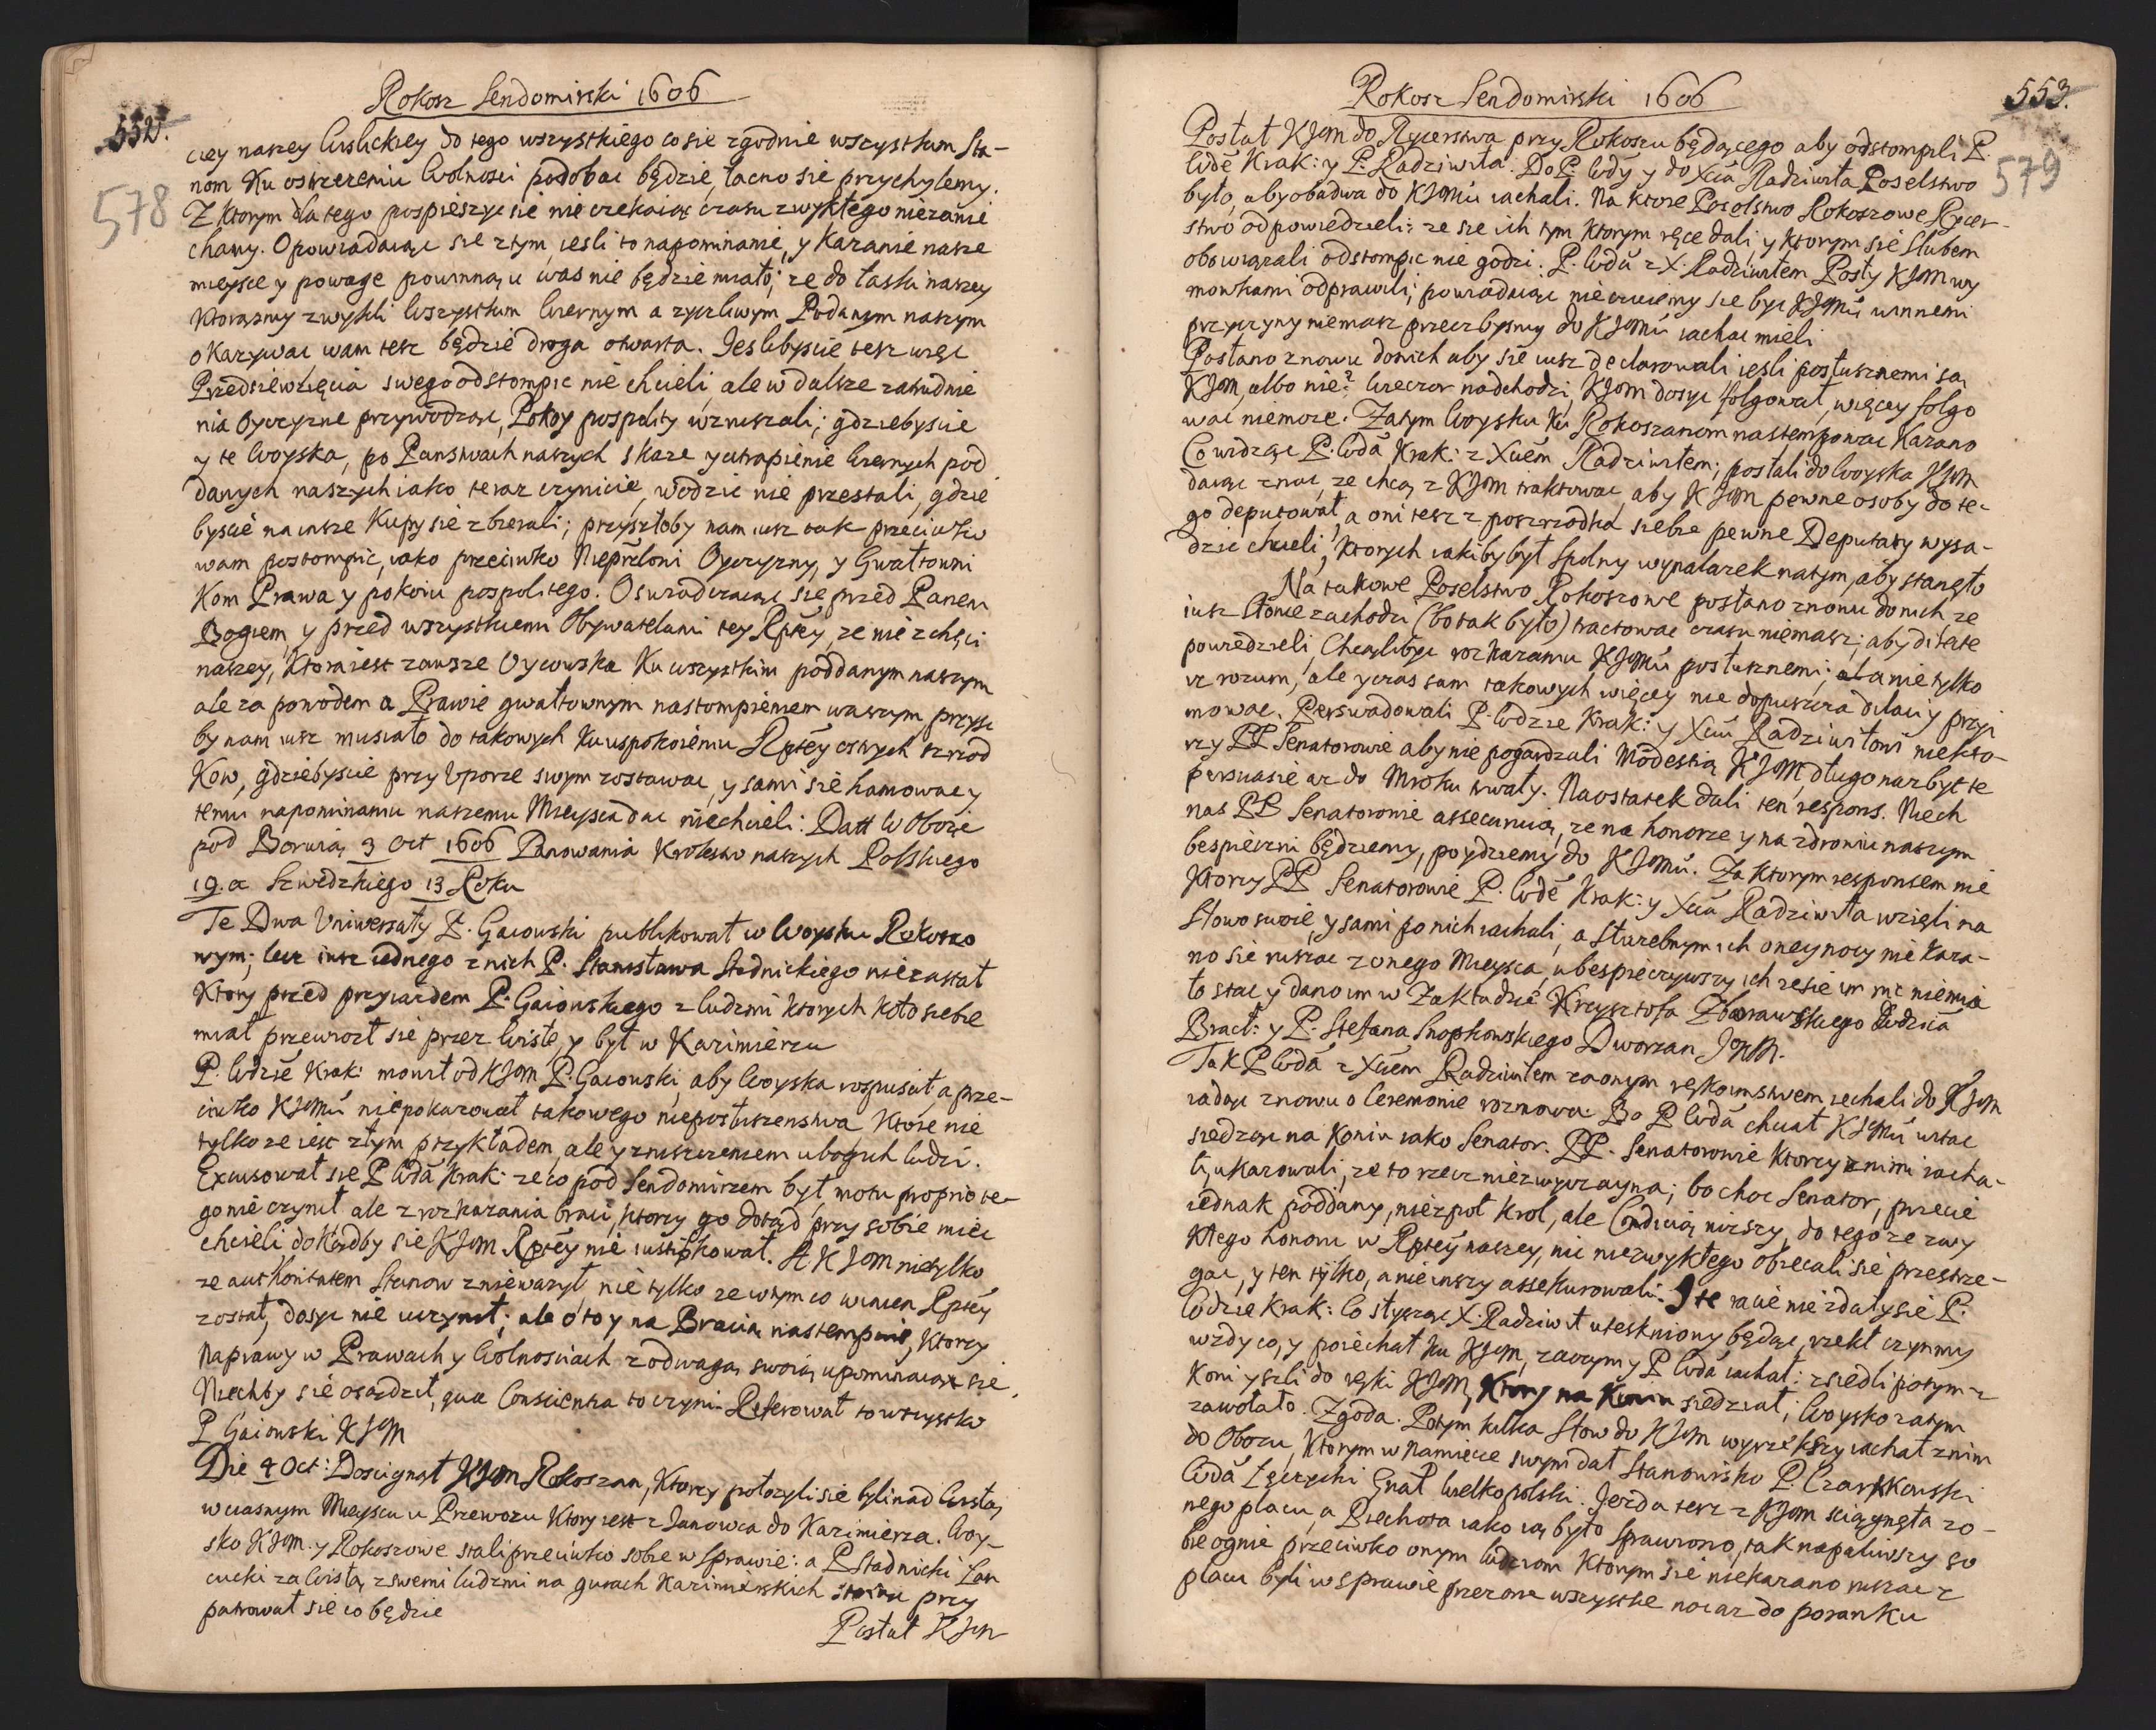 Rokosz Sendomirski 1606
552.
578
ciey naszey Wislickiey do tego wszystkiego co sie zgodnie wszystkim Sta-
nom Ku ostrzezeniu Wolnosci podobac będzie, łacno sie przychylemy.
Z Ktorym dla tego pospieszyc sie nie czekaiąc czasu zwykłego niezanie
chamy. Opowiadaiąc sie ztym, iesli to napominanie, y Karanie nasze
mieysce y powage powinną u was nie będzie miało; ze do łaski naszey
Ktorąsmy zwykli Wszystkim Wiernym a zyczliwym Podanym naszym
okazywac wam tesz będzie droga otwarta. Jeslibyscie tesz więc
Przedsiewzięcia swego odstompic nie chcieli, ale w dalsze zatrudnie
nia Oyczyzne przywodząc, Pokoy pospolity wzruszali; gdziebyscie
y te Woyska, po Panstwach naszych skaze y utrapienie Wiernych pod
danych naszych iako teraz czynicie, wodzic nie przestali, gdzie
byscie na insze Kupy sie zbierali; przyszłoby nam iusz tak przeciwko
wam postompic, iako przeciwko Nieprzeloni Oyczyzny, y Gwałtowni
Kom Prawa y pokoiu pospolitego. Oswiadczaiąc sie przed Panem
Bogiem, y przed wszystkiemi Obywatelami tey Rptey, ze nie z chęci
naszey, Ktora iest zawsze Oycowska Ku wszystkim poddanym naszym
ale za powodem a Prawie gwałtownym nastompieniem waszym przysz
by nam iusz musiało do takowych Ku uspokoieniu Rptey ostrych srzod
Kow, gdziebyscie przy Uporze swym zostawac, y sami sie hamowac y
temu napominaniu naszemu Mieysca dac niechcieli: Datt W Obozie
pod Borwią 3 Oct 1606 Panowania Krolestw naszych Polskiego
19. a Szwedzkiego 13 Roku
Te Dwa Uniwersały P. Gaiowski publikował w Woysku Rokoszo
wym; lecz iusz iednego z nich P. Stanisława Stadnickiego niezastał
Ktory przed przyiazdem P. Gaiowskiego z ludzmi Ktorych Koło siebie
miał przewiozł sie przez Wisłe, y był w Kazimierzu
P. Wdzie Krak: mowił od KJM P. Gaiowski, aby Woyska rozpuscił, a prze-
ciwko KJMu niepokazował takowego niepostuszenstwa Ktore nie
tylko ze iest złym przykładem, ale y zniszczeniem ubogich ludzi.
Excusował sie P Wda Krak: ze co pod Sendomirzem był, motu proprio te-
go nie czynił ale z rozkazania braci, Ktorzy go dotąd przy sobie miec
chcieli, dokądby sie KJM Rptey nie iustifikował. A KJM nietylko
ze authoritatem Stanow zniewazył, nie tylko ze w tym co winien Rptey
został, dosyc nie uczynił; ale oto y na Bracią nastempuie, Ktorzy
Naprawy w Prawach y Wolnosciach zodwagą swoią upominaiąc sie.
Niechby sie osądził, qua Conscientia to czyni. Referował to wszystko
P Gaiowski KJM
Die 4 Oct: Doscignął KJM Rokoszan, Ktorzy połozyli sie byli nad Wisłą
w ciasnym Mieyscu u Przewozu Ktory iest z Janowca do Kazimierza. Woy-
sko KJM. y Rokoszowe stali przeciwko sobie w Sprawie: a P Stadnicki Łan
cucki za Wisłą z swemi ludzmi na gurach Kazimierskich stoiąc przy
patrował sie co będzie
Posłał KJM
Rokosz Sendomirski 1606
553.
579
Posłał KJM do Rycerstwa przy Rokoszu będącego aby odstompili P.
Wde Krak: y P. Radziwiła. Do P. Wdy y do Xcia Radziwiła Poselstwo
było, aby obadwa do KJMu iachali. Na Ktore Poselstwo Rokoszowe Rycer-
stwo odpowiedzieli: ze sie ich tym Ktorym ręce dali, y Ktorym sie Slubem
obowiązali odstompic nie godzi. P. Wda z X. Radziwiłem Posły KJM wy
mowkami odprawili, powiadaiąc nie czuiemy sie byc KJMu winnemi
przyczyny niemasz przeczbysmy do KJMu iachac mieli
Posłano znowu do nich aby sie iusz declarowali iesli posłusznemi są
KJM, albo nie? Wieczor nadchodzi, KJM dosyc folgował, więcey folgo
wac niemoze. Zatym Woysku Ku Rokoszanom nastempowac Kazano
Co widząc P. Wda Krak: z Xciem Radziwiłem; posłali do Woyska KJM
daiąc znac, ze chcą z KJM traktowac, aby KJM pewne osoby do te-
go deputował, a oni tesz z poszrodka siebie pewne Deputaty wysa-
dzic chcieli, Ktorych iakiby był Spolny wynalazek natym, aby stanęło
Na takowe Poselstwo Rokoszowe posłano znowu do nich, ze
iusz Słonce zachodzi (bo tak było) tractowac czasu niemasz; aby ditate
powiedzieli, Chcąliby byc rozkazaniu KJMu posłusznemi; ala nie tylko
rozum, ale y czas sam takowych więcey nie dopuszcza dilaciy przyi
mowac. Perswadowali P. Wdzie Krak: y Xciu Radziwiłowi niekto-
rzy PP Senatorowie aby nie pogardzali Modestią KJM, długo nazbyt te
persuasie az do Mroku trwały. Naostatek dali ten respons. Niech
nas PP Senatorowie assecuruią, ze na honorze y na zdrowiu naszym
bespieczni będziemy, poydziemy do KJMu. Za Ktorym responsem nie
Ktorzy PP Senatorowie P. Wde Krak: y Xcia Radziwiła wzięli na
Słowo swoie, y sami po nich iachali, a słuzebnym ich oney nocy nie Kaza-
no sie ruszac z onego Mieysca, ubespieczywszy ich ze sie im nic niemia
ło stac y dano im w Zakładzie Krzysztofa Zbarawskiego Wdzica
Bracł: y P. Stefana Snopkowskiego Dworzan JKM.
Tak P Wda z Xciem Radziwiłem za onym rękoimstwem iechali do KJM
iadąc znowu o Ceremonie rozmowa. Bo P Wda chciał KJMu witac
siedząc na Koniu iako Senator. PP. Senatorowie Ktorzy z nimi iacha-
li, ukazowali, ze to rzecz niezwyczayna; bo choc Senator, przecie
iednak poddany, niezpoł Krol, ale Condicią nizszy, do tego ze zwy
kłego honoru w Rptey naszey, nic niezwykłego obiecali sie przestrze-
gac, y ten tylko, a nie inszy assekurowali. I te racie nie zdały sie P.
Wdzie Krak: Co słysząc X. Radziwił uteskniony będąc, rzekł czynmy
wzdy co, y poiechał Ku KJM, zaczym y P Wda iachał: zsiedli potym z
Koni y szli do ręki KJM, Ktory na Koniu siedział; Woysko zatym
zawołało. Zgoda. Potym kilka Słow do KJM wyrzekszy iachał z nim
do Obozu, Ktorym w Namiecie swym dał Stanowisko P. Czarnkowski
Wda Łęczycki Gnał Wielkopolski. Jezda tesz z KJM sciągnęła zo-
nego placu, a Piechota iako ią było Sprawiono, tak napaliwszy so
bie ognie przeciwko onym ludziom Ktorym sie niekazano ruszac z
placu byli w sprawie przez one wszystke noc az do poranku